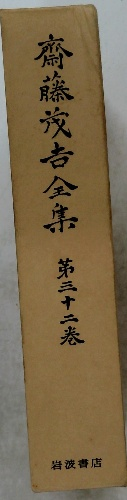 齋藤茂吉全集
第三十二巻
岩波書店